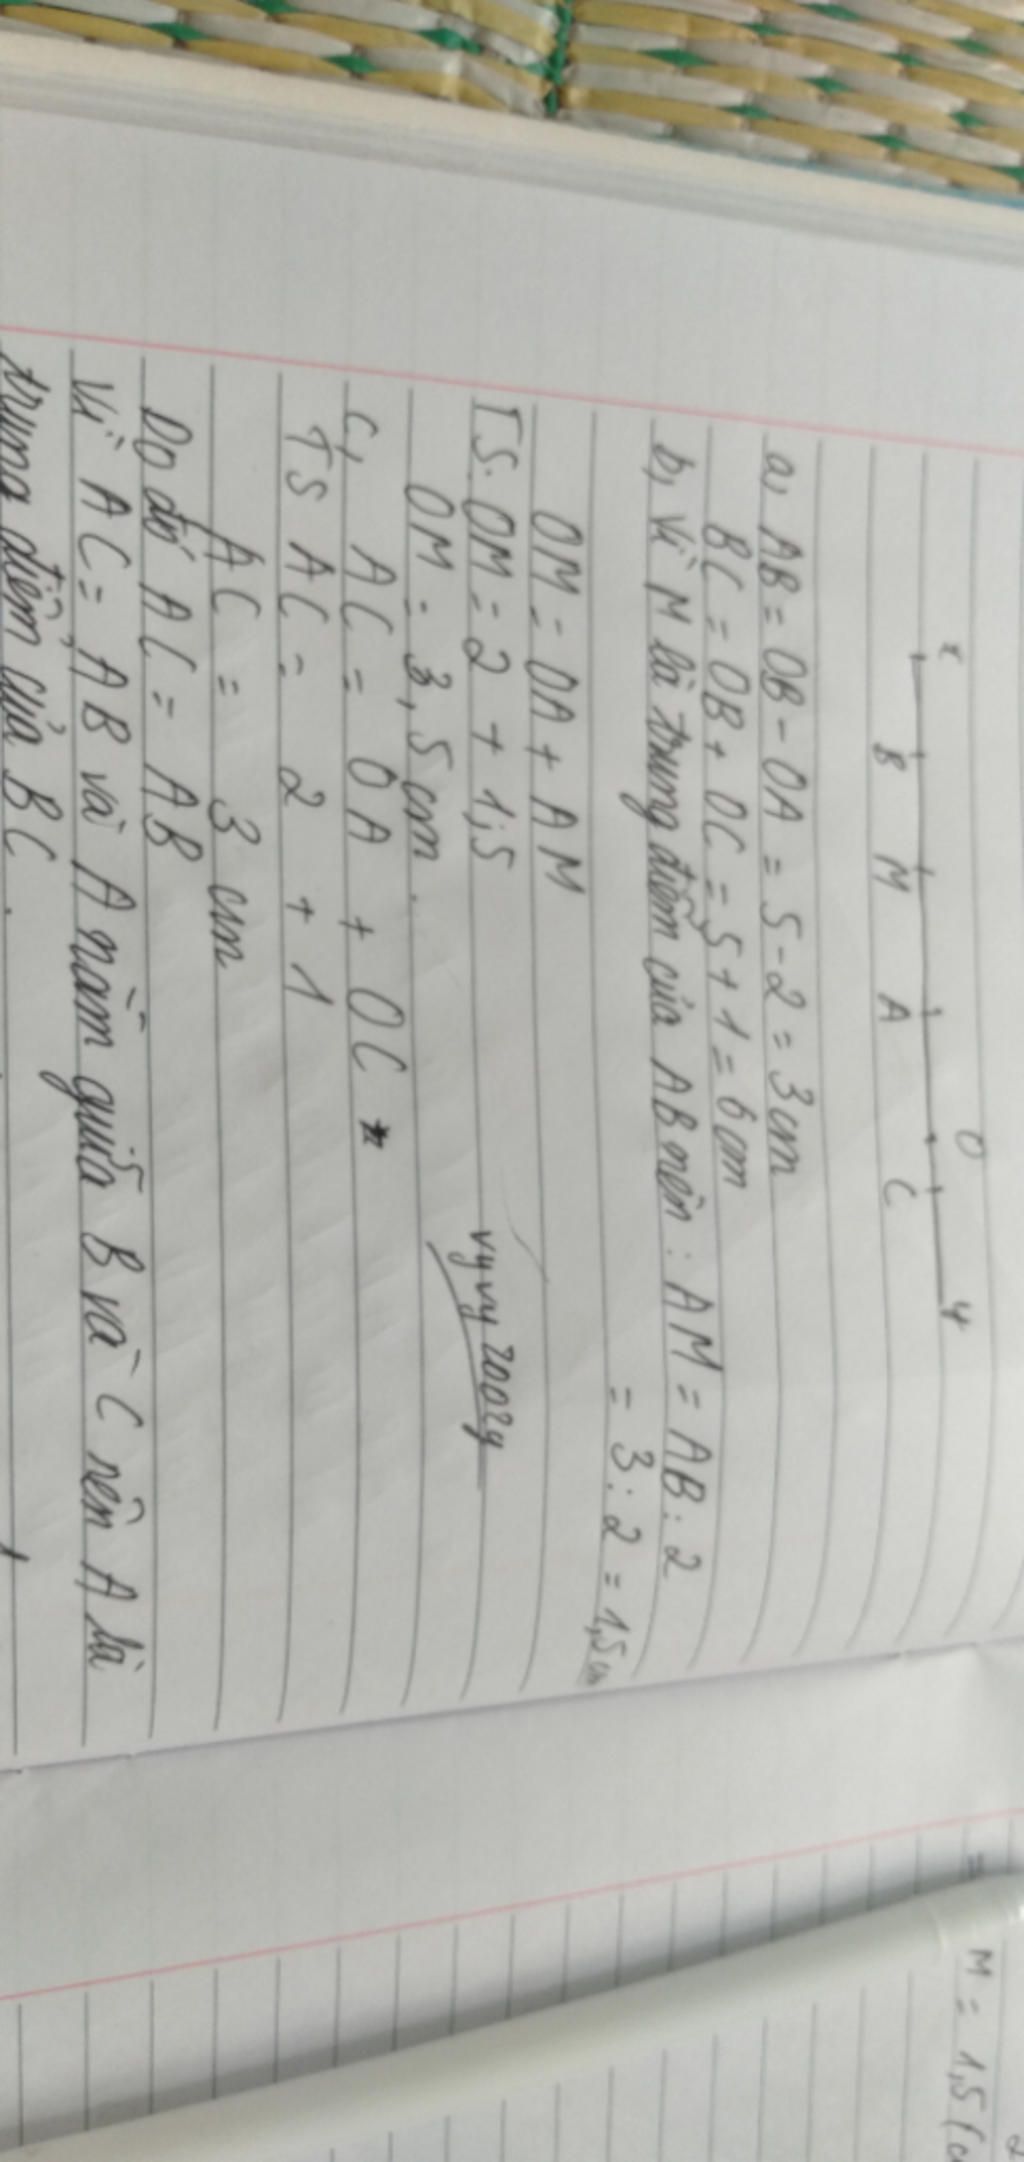 x B M A O C y
a, AB = OB - OA = 5 - 2 = 3cm
BC = OB + OC = 5 + 1 = 6 cm
b, Vì M là trung điểm của AB nên : AM = AB : 2
= 3 : 2 = 1,5 cm
OM = OA + AM
TS. OM = 2 + 1,5
OM = 3,5 cm.
vyvy2003y
c, AC = OA + OC
TS AC = 2 + 1
AC = 3 cm
Do đó AC = AB
Vì AC = AB và A nằm giữa B và C nên A là
trung điểm của BC.
M = 1,5 (c